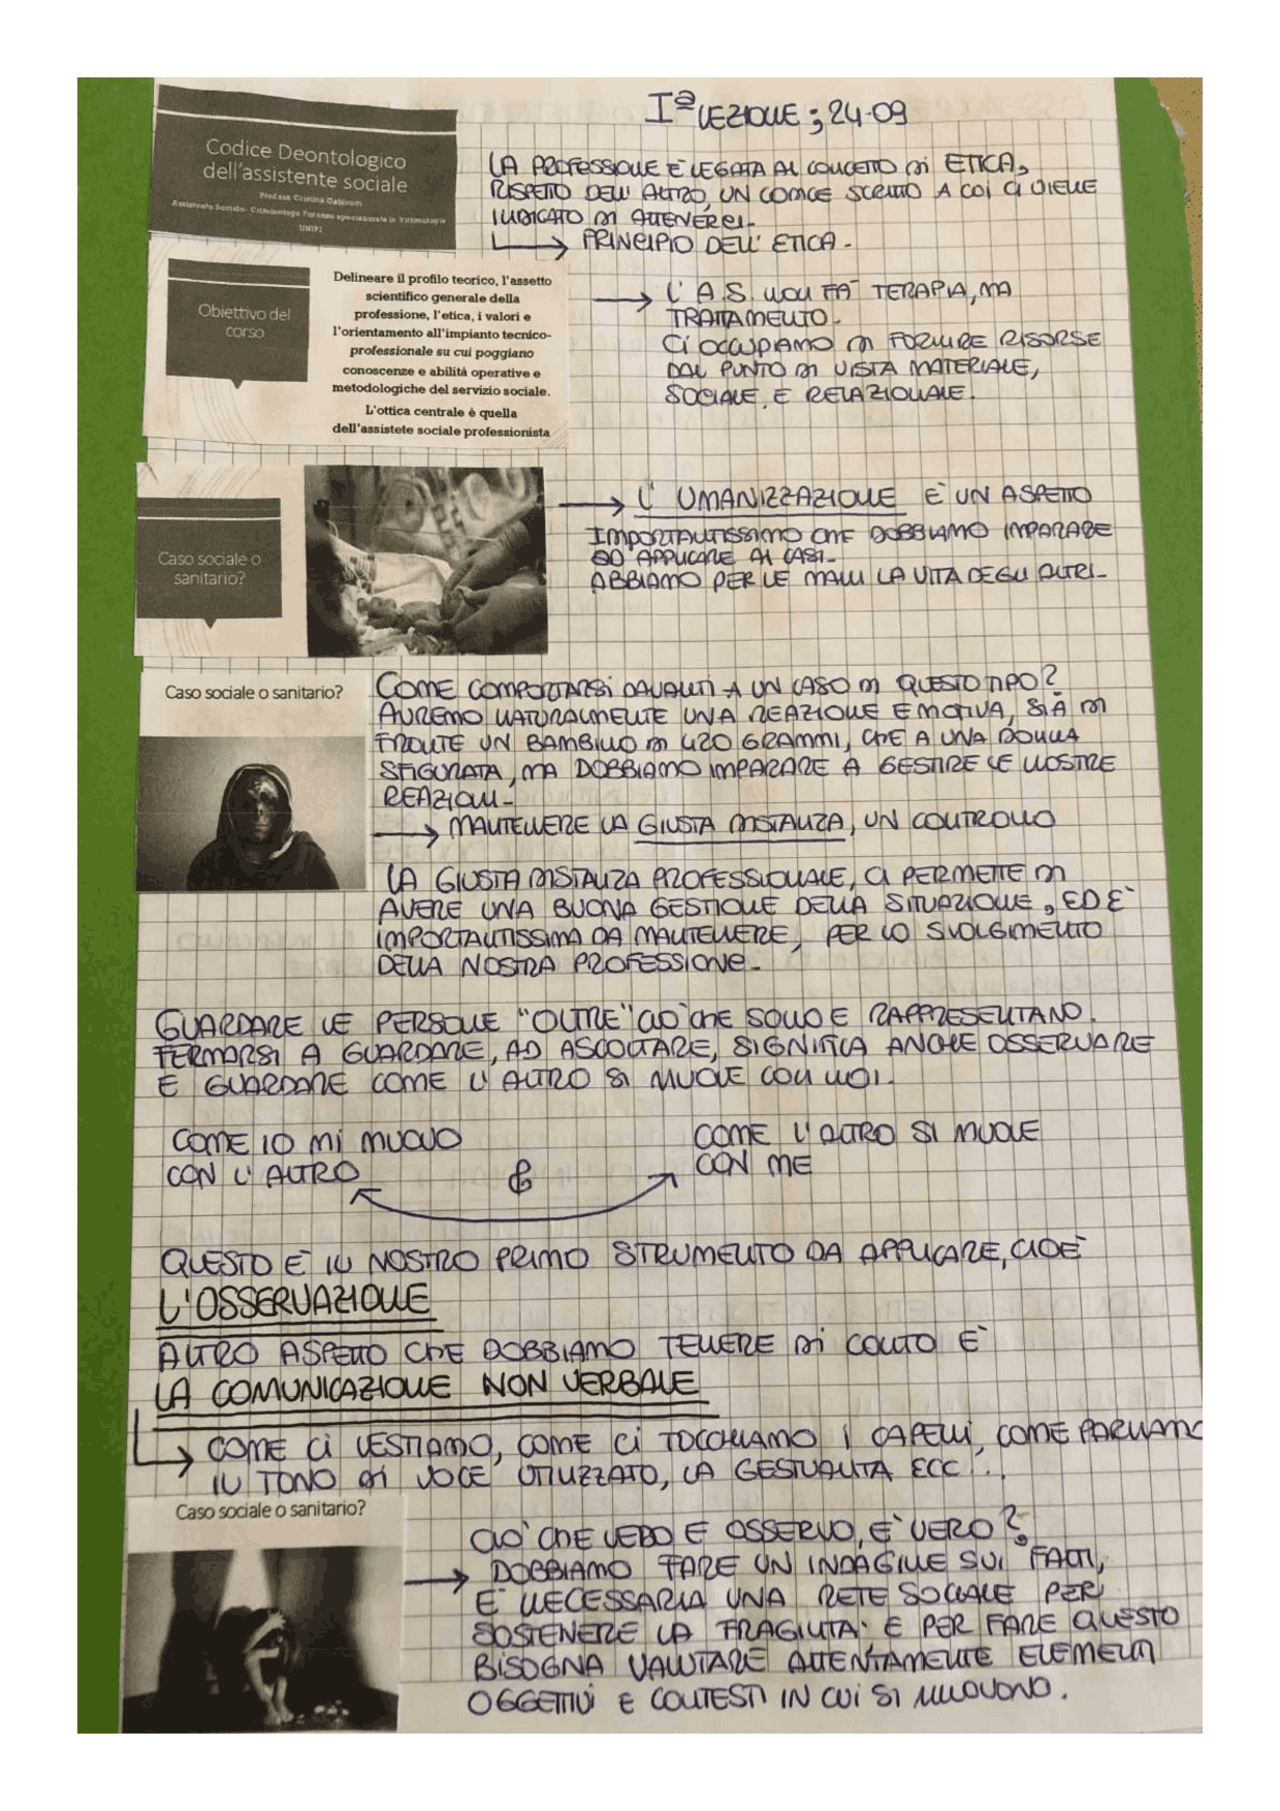 Iª LEZIONE ; 24-09
Codice Deontologico
dell'assistente sociale
Prof.ssa Cristina Galavotti
Assistente Sociale- Criminologa Forense specializzata in Vittimologia
UNIPI
LA PROFESSIONE E' LEGATA AL CONCETTO DI ETICA,
RISPETTO DELL' ALTRO, UN CODICE SCRITTO A COI CI VIENE
INDICATO DI ATTENERCI.
PRINCIPIO DELL' ETICA.
Obiettivo del
corso
Delineare il profilo teorico, l'assetto
scientifico generale della
professione, l'etica, i valori e
l'orientamento all'impianto tecnico-
professionale su cui poggiano
conoscenze e abilità operative e
metodologiche del servizio sociale.
L'ottica centrale è quella
dell'assistete sociale professionista
L' A.S. NON FA' TERAPIA, MA
TRATTAMENTO.
CI OCCUPIAMO DI FORNIRE RISORSE
DAL PUNTO DI VISTA MATERIALE,
SOCIALE, E RELAZIONALE.
Caso sociale o
sanitario?
L' UMANIZZAZIONE E' UN ASPETTO
IMPORTANTISSIMO CHE DOBBIAMO IMPARARE
AD APPLICARE AI CASI.
ABBIAMO PER LE MANI LA VITA DEGLI ALTRI.
Caso sociale o sanitario?
COME COMPORTARSI DAVANTI A UN CASO DI QUESTO TIPO?
AVREMO NATURALMENTE UNA REAZIONE EMOTIVA, SIA DI
FRONTE UN BAMBINO DI 420 GRAMMI, CHE A UNA DONNA
SFIGURATA, MA DOBBIAMO IMPARARE A GESTIRE LE NOSTRE
REAZIONI.
MANTENERE LA GIUSTA DISTANZA, UN CONTROLLO
LA GIUSTA DISTANZA PROFESSIONALE, CI PERMETTE DI
AVERE UNA BUONA GESTIONE DELLA SITUAZIONE, ED E'
IMPORTANTISSIMA DA MANTENERE, PER LO SVOLGIMENTO
DELLA NOSTRA PROFESSIONE.
GUARDARE LE PERSONE "OLTRE" CIO' CHE SONO E RAPPRESENTANO.
FERMARSI A GUARDARE, AD ASCOLTARE, SIGNIFICA ANCHE OSSERVARE
E GUARDARE COME L' ALTRO SI MUOVE CON NOI.
COME IO MI MUOVO
CON L' ALTRO
&
COME L'ALTRO SI MUOVE
CON ME
QUESTO E' IL NOSTRO PRIMO STRUMENTO DA APPLICARE, CIOE'
L'OSSERVAZIONE
ALTRO ASPETTO CHE DOBBIAMO TENERE DI CONTO E'
LA COMUNICAZIONE NON VERBALE
COME CI VESTIAMO, COME CI TOCCHIAMO I CAPELLI, COME PARLIAMO
IL TONO DI VOCE UTILIZZATO, LA GESTUALITA' ECC...
Caso sociale o sanitario?
CIO' CHE VEDO E OSSERVO, E' VERO?
DOBBIAMO FARE UN INDAGINE SUI FATTI,
E' NECESSARIA UNA RETE SOCIALE PER
SOSTENERE LA FRAGILITA' E PER FARE QUESTO
BISOGNA VALUTARE ATTENTAMENTE ELEMENTI
OGGETTIVI E CONTESTI IN CUI SI MUOVONO.